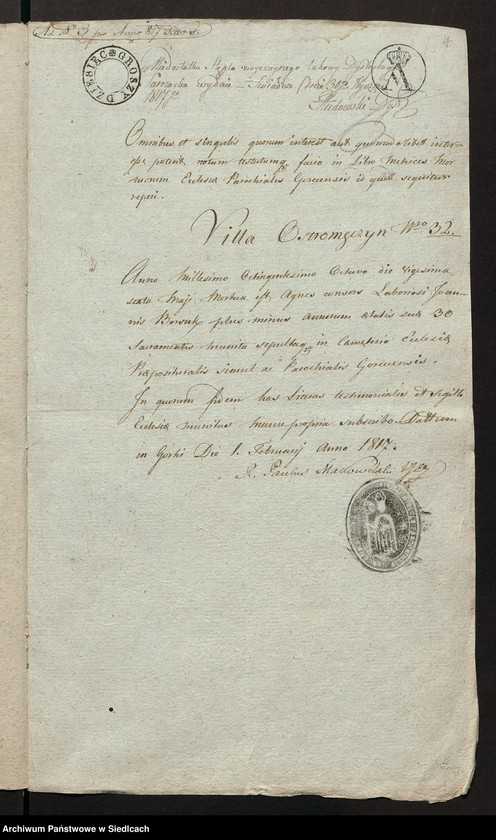 Ad Nº 3 pro Anno 817
DZIESIĘC GROSZY
A
W Niedostatku Stępla
Parraedia wydaie dnia 30
1817
Omnibus et singulis quorum interest aut quomodolibet inter
esse poterit, notum testatumq facio in Libro Metrices Mor
tuorum Ecclesiæ Parochialis Gorcensis id quod sequitur
reperi.
Villa Ostromęczyn Nro 32.
Anno Millesimo Octingentesimo Octavo die vigesima
sexta Maji Mortua est Agnes consors Laboriosi Joan
nis Borsuk plus minus annorum ætatis suæ 30
Sacramentis munita sepultaq in Cæmeterio Ecclesiæ
Præposituralis simul ac Parochialis Gorcensis.
In quorum fidem has literas testimoniales et sigillo
Ecclesiæ munitas manu propria subscribo. Dattum
in Gorki Die 1. Februarij Anno 1817.
Paulus
Archiwum Państwowe w Siedlcach